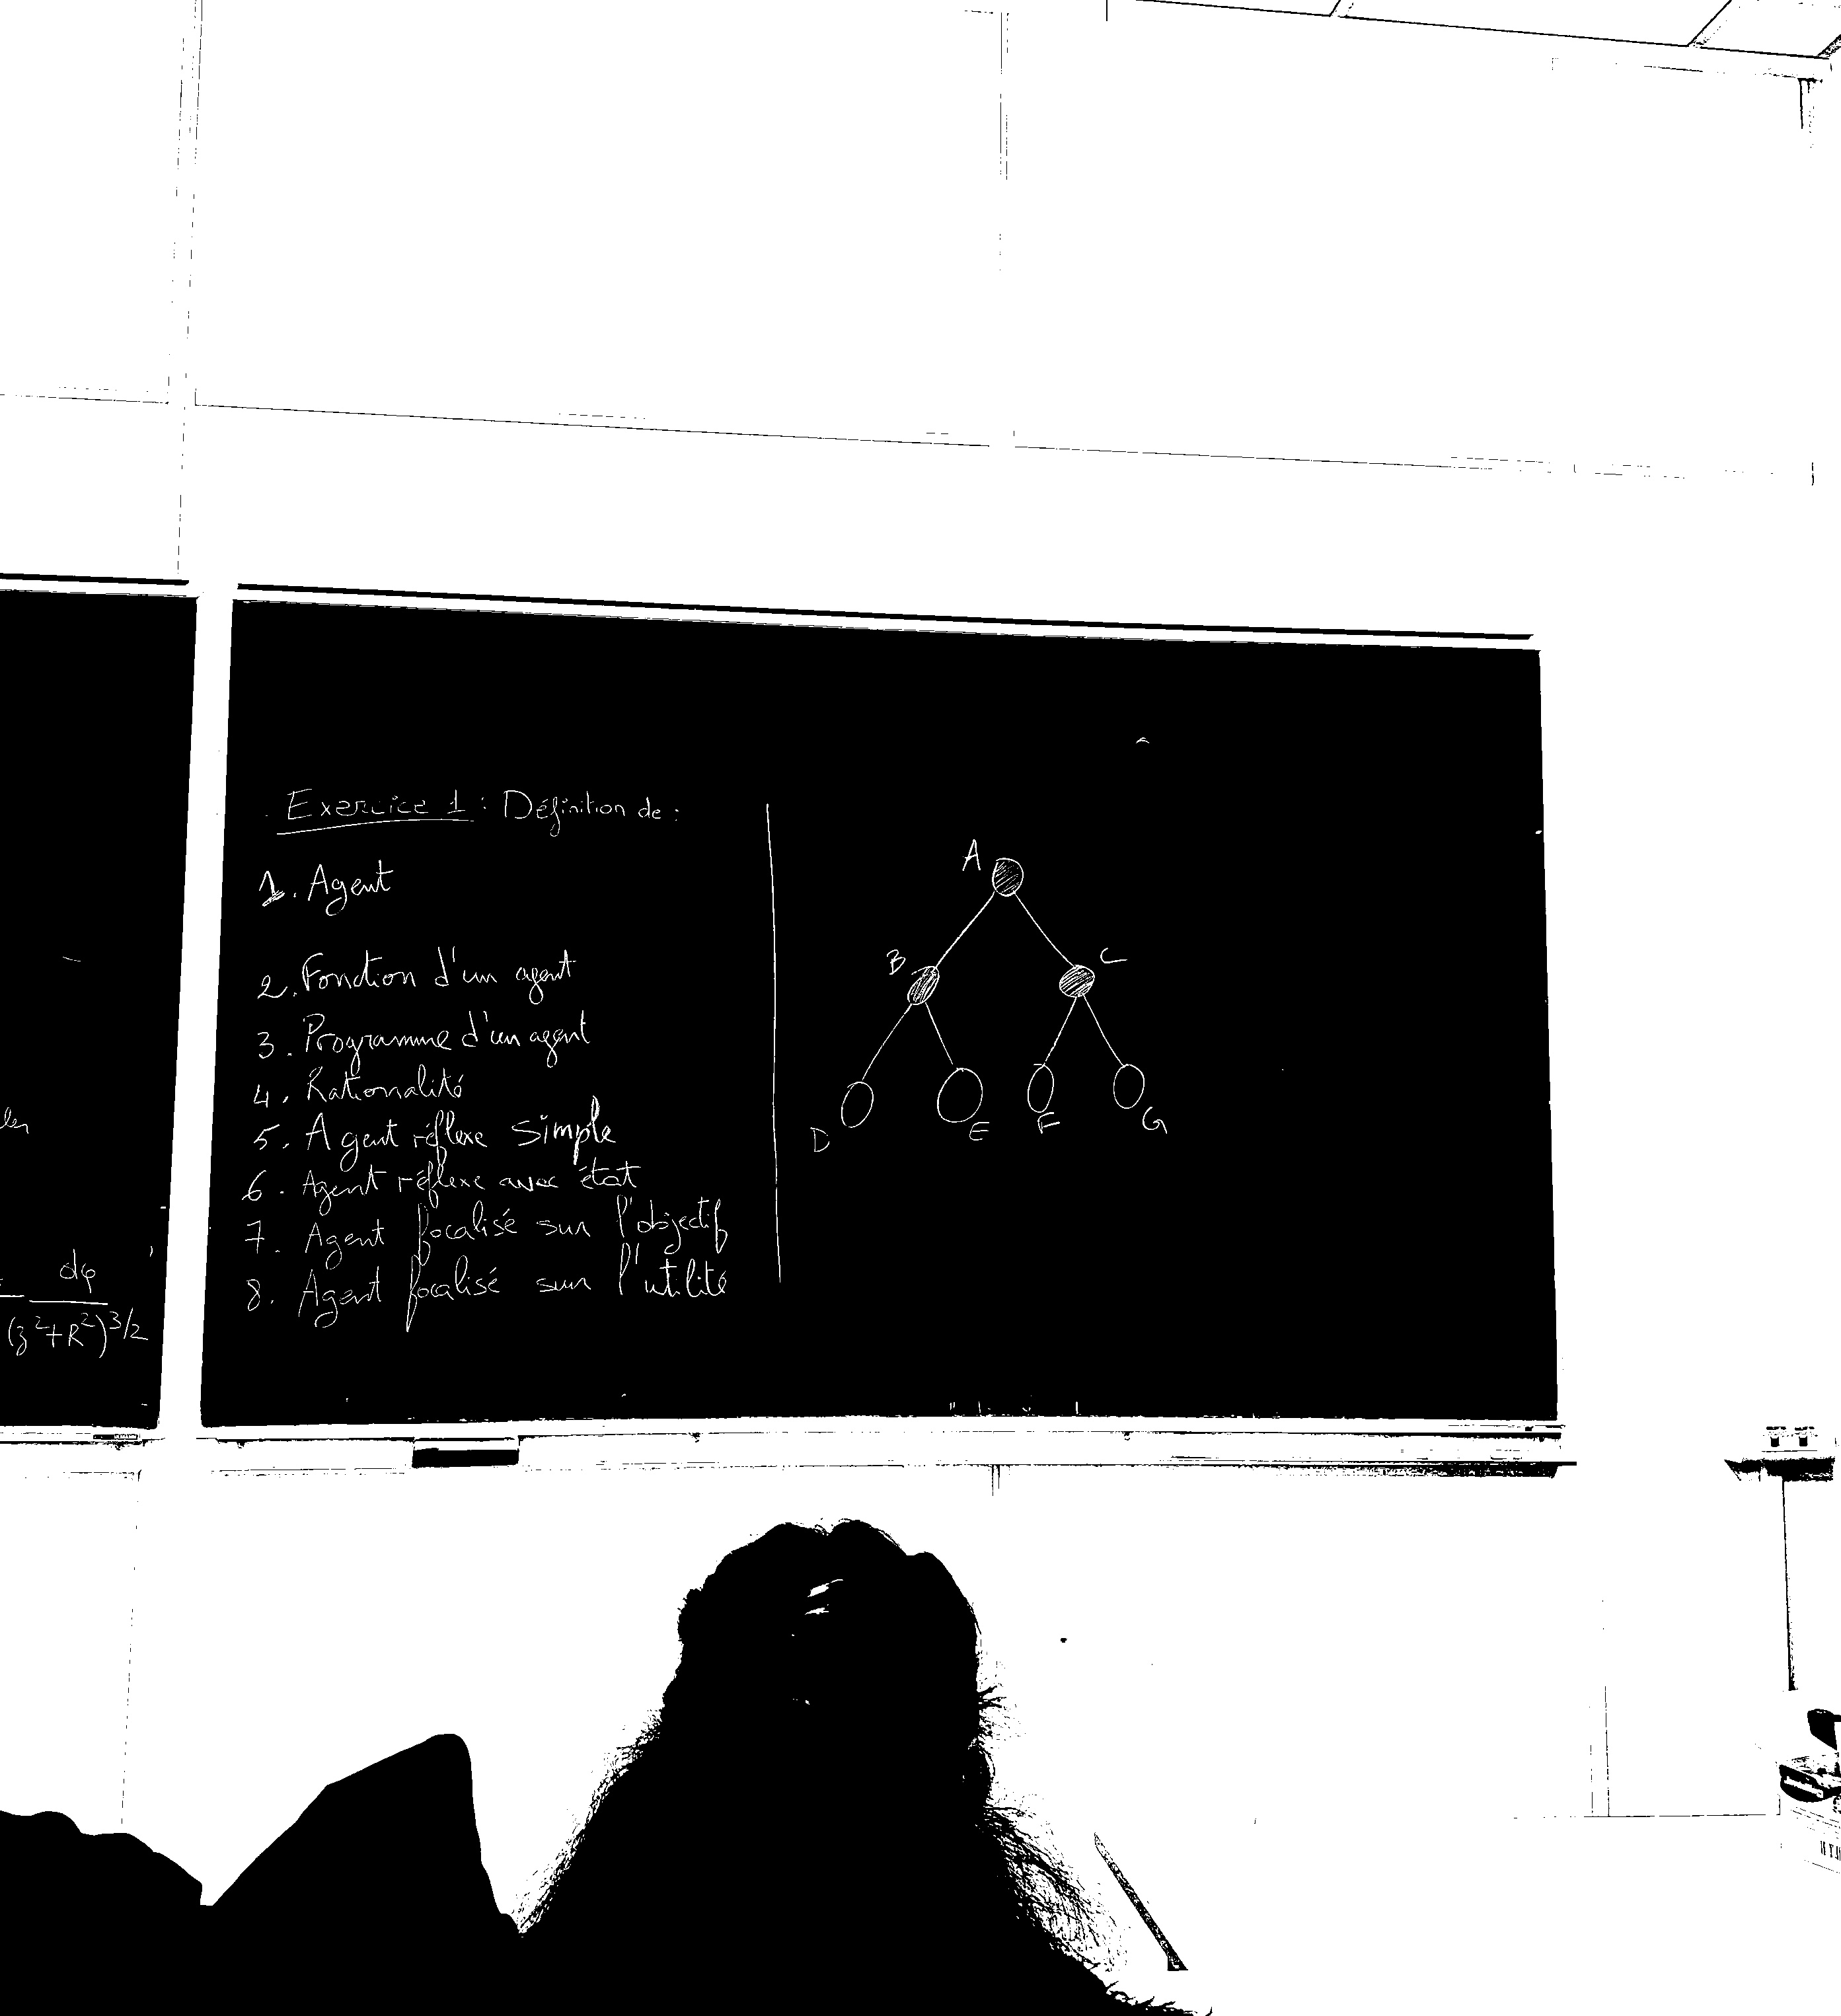 Exercice 1 : Définition de :
1. Agent
2. Fonction d'un agent
3. Programme d'un agent
4. Rationalité
5. Agent réflexe simple
6. Agent réflexe avec état
7. Agent focalisé sur l'objectif
8. Agent focalisé sur l'utilité
A
B C
D E F G
dφ
(z²+R²)^3/2